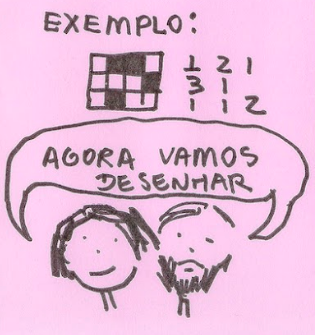 EXEMPLO:
1 2 1
3 1
1 1 2
AGORA VAMOS
DESENHAR